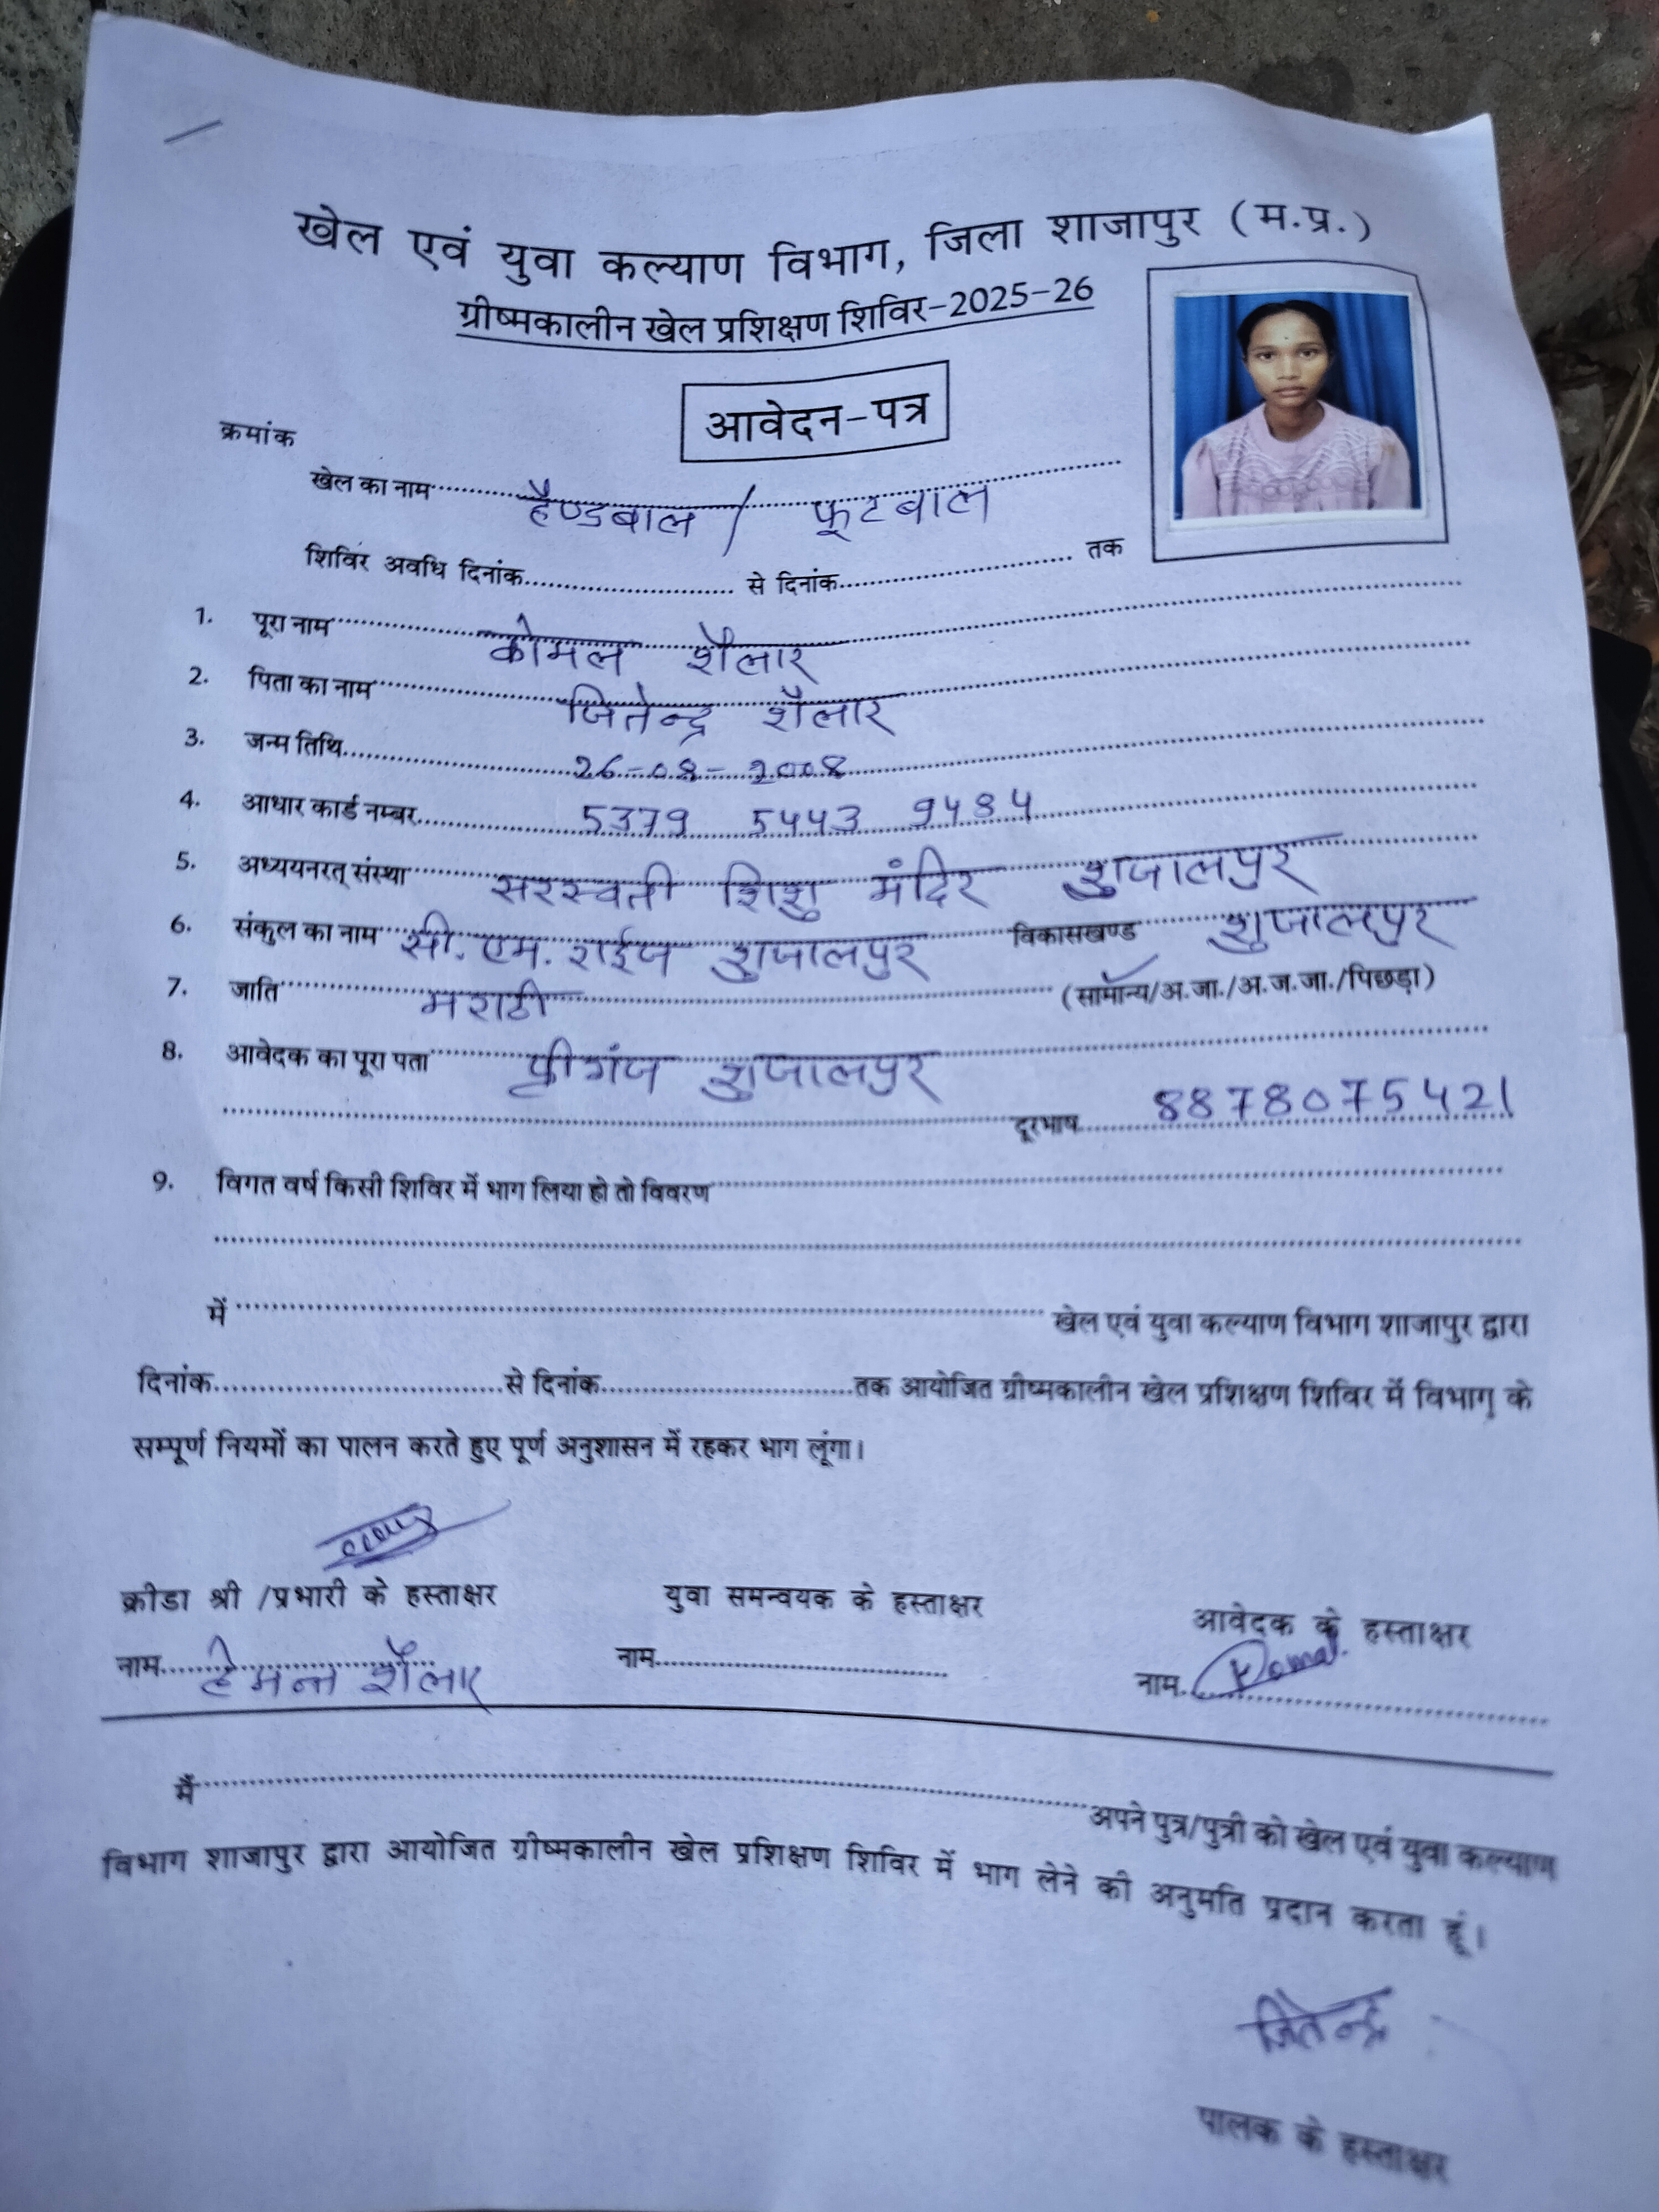 खेल एवं युवा कल्याण विभाग, जिला शाजापुर (म.प्र.)
ग्रीष्मकालीन खेल प्रशिक्षण शिविर-2025-26
आवेदन-पत्र
क्रमांक
खेल का नाम हैण्डबाल / फूटबाल
शिविर अवधि दिनांक से दिनांक तक
1. पूरा नाम कोमल शैलार
2. पिता का नाम जितेन्द्र शैलार
3. जन्म तिथि 26-08-2008
4. आधार कार्ड नम्बर 5379 5443 9484
5. अध्ययनरत् संस्था सरस्वती शिशु मंदिर शुजालपुर
6. संकुल का नाम सी. एम. राईज शुजालपुर विकासखण्ड शुजालपुर
7. जाति मराठी (सामान्य/अ.जा./अ.ज.जा./पिछड़ा)
8. आवेदक का पूरा पता फ्रीगंज शुजालपुर
दूरभाष 8878075421
9. विगत वर्ष किसी शिविर में भाग लिया हो तो विवरण
में खेल एवं युवा कल्याण विभाग शाजापुर द्वारा
दिनांक से दिनांक तक आयोजित ग्रीष्मकालीन खेल प्रशिक्षण शिविर में विभाग के
सम्पूर्ण नियमों का पालन करते हुए पूर्ण अनुशासन में रहकर भाग लूंगा।
क्रीडा श्री /प्रभारी के हस्ताक्षर युवा समन्वयक के हस्ताक्षर आवेदक के हस्ताक्षर
नाम हेमन्त शैलार नाम नाम Komal
मैं अपने पुत्र/पुत्री को खेल एवं युवा कल्याण
विभाग शाजापुर द्वारा आयोजित ग्रीष्मकालीन खेल प्रशिक्षण शिविर में भाग लेने की अनुमति प्रदान करता हूं।
जितेन्द्र
पालक के हस्ताक्षर